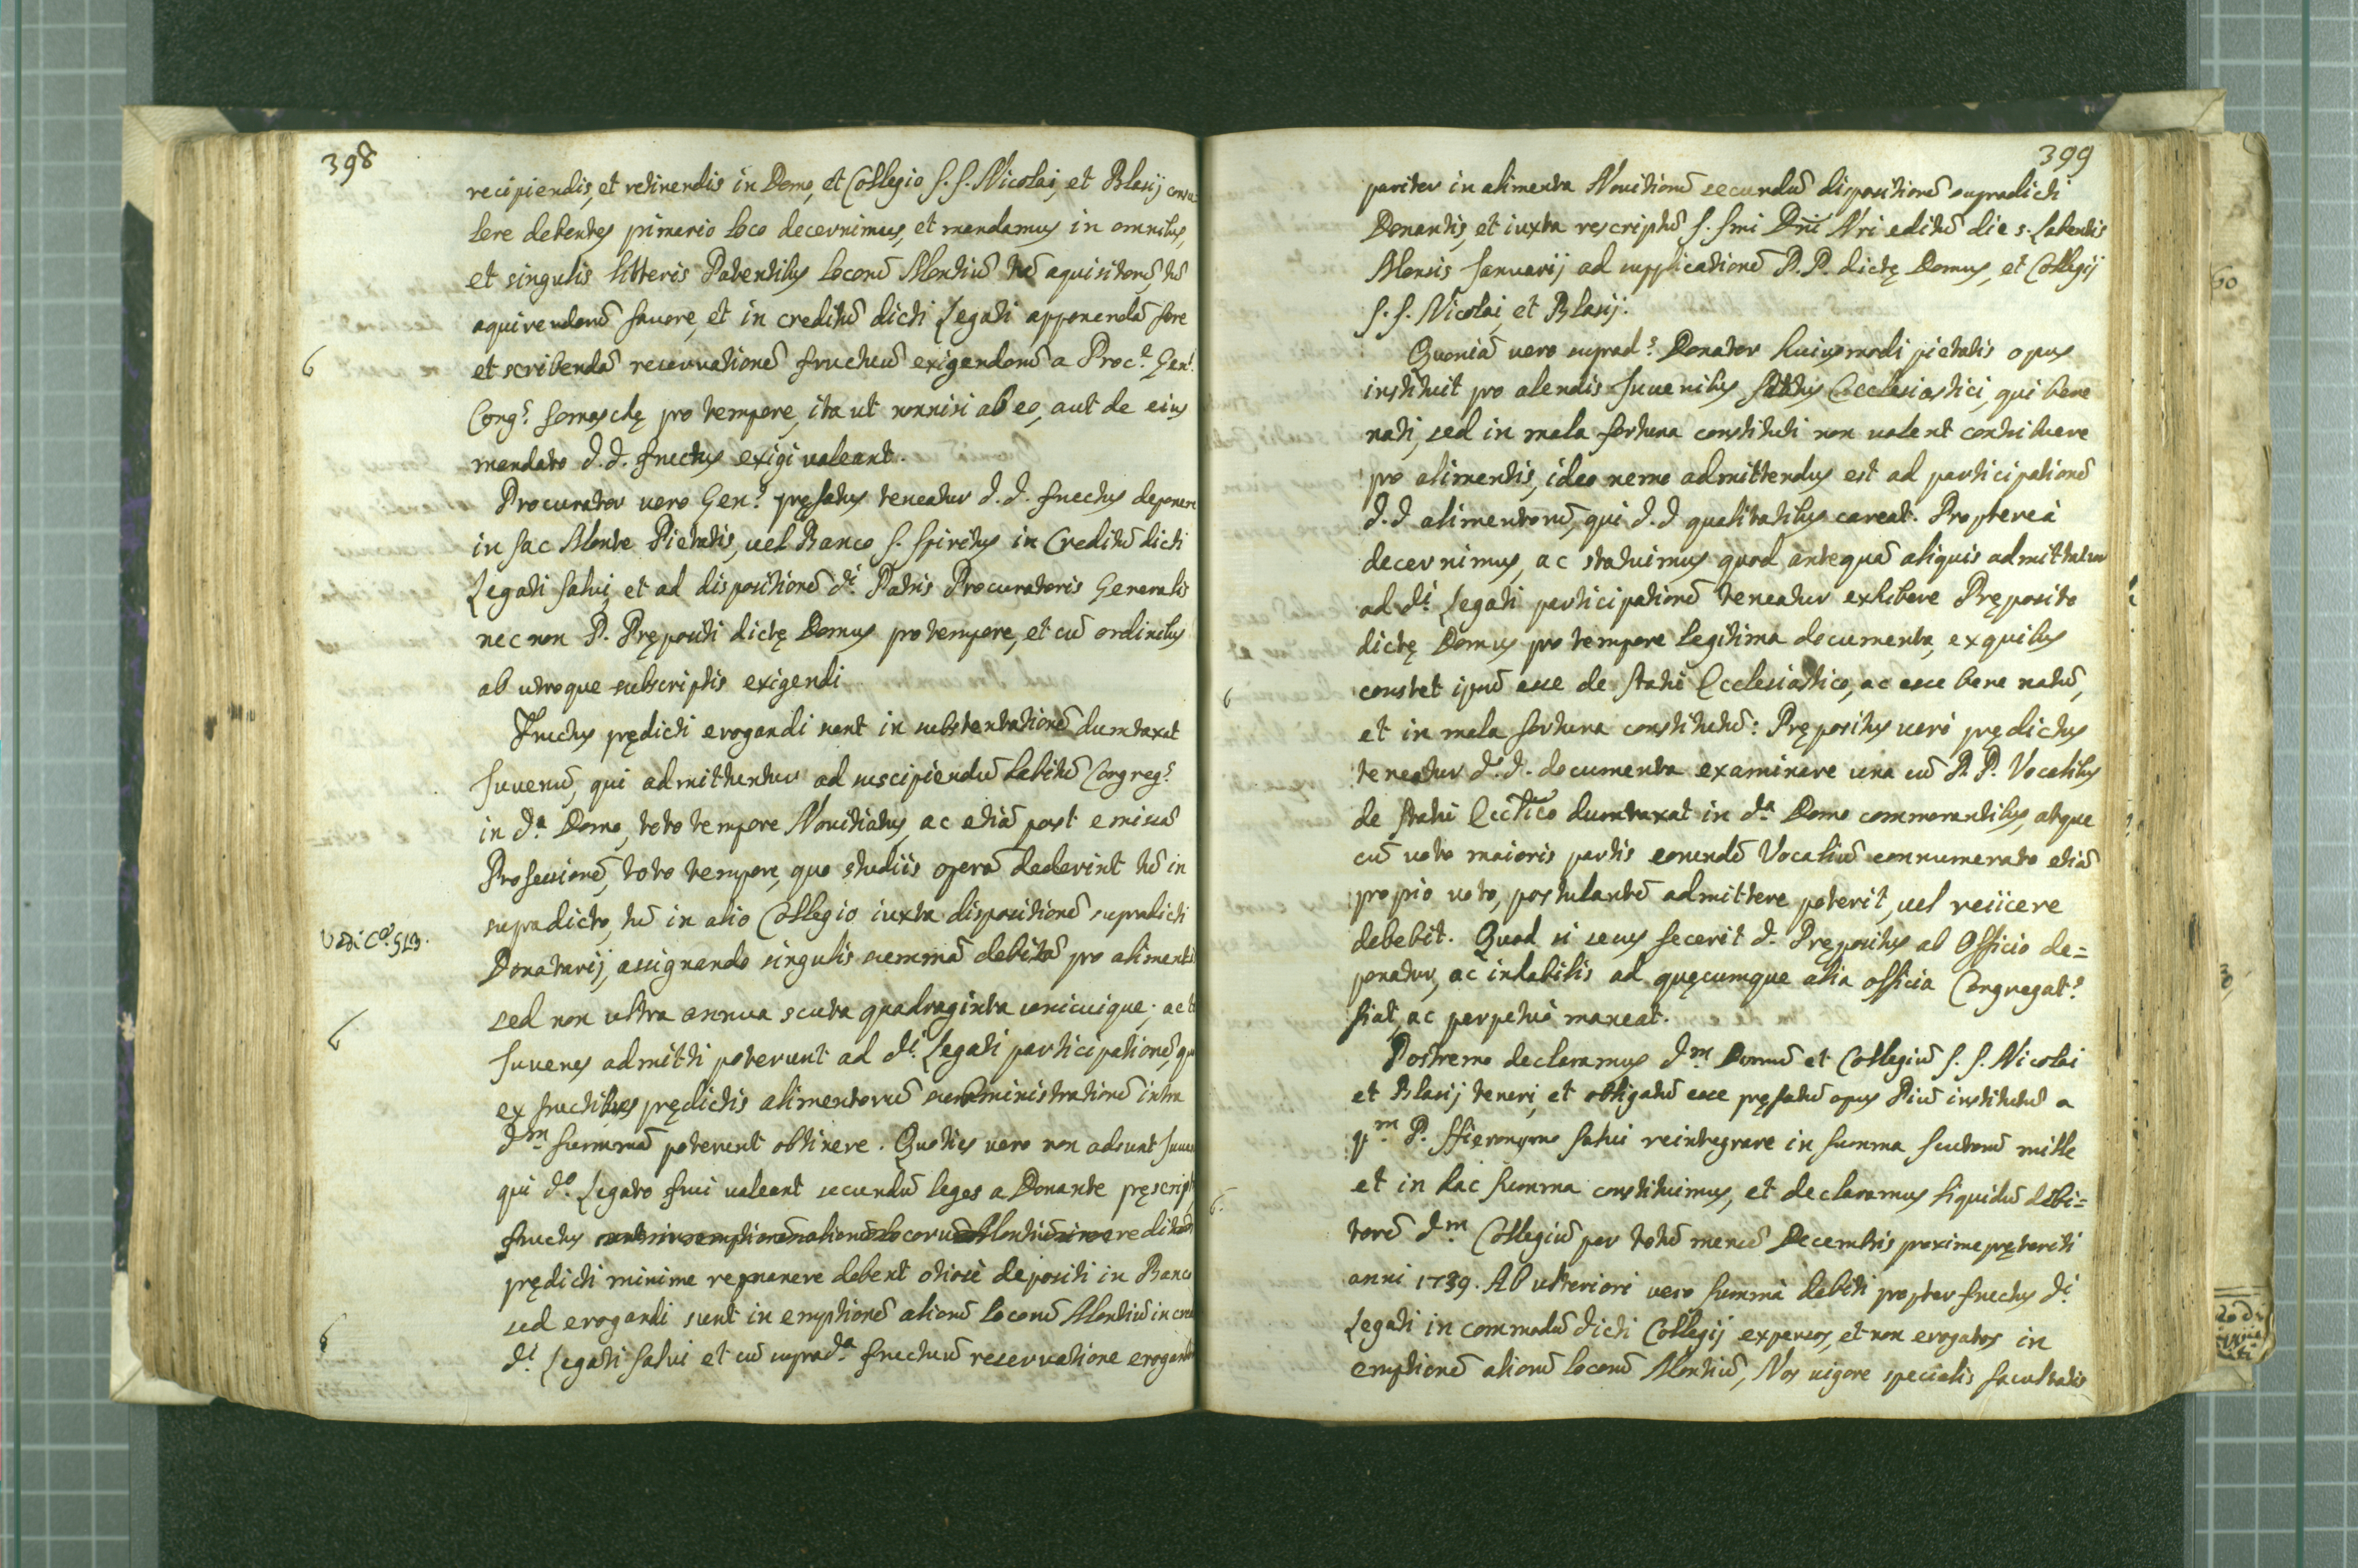 398
recipiendis, et retinendis in Domo, et Collegio S. S. Nicolai, et Blasij consu
lere debentes primario loco decernimus, et mandamus in omnibus,
et singulis litteris Patentibus locorũ Montiũ tũ aquisitorũ, tũ
aquirendorũ favore, et in creditũ dicti Legati apponendã fore
6
et scribendã reservationẽ fructuũ exigendorũ a Proc.e Gen.l
Cong.s Somaschę pro tempore, ita ut nonnisi ab eo, aut de eius
mandato d. d. fructus exigi valeant.
Procurator vero Gen.s pręfatus teneatur d. d. fructus deponere
in Sac Monte Pietatis, vel Banco S. Spiritus in Creditũ dicti
Legati Salvi, et ad dispositionẽ d.i Patris Procuratoris Generalis
nec non P. Prępositi dictę Domus pro tempore, et cũ ordinibus
ab utroque subscriptis exigendi
Fructus prędicti erogandi sunt in substentationẽ dumtaxat
Juvenũ, qui admittuntur ad suscipiendũ habitũ Congreg.s
in d.a Domo, toto tempore Novitiatus, ac etiã post emissã
Professionẽ, toto tempore, quo studiis operã dederint tũ in
supradicto, tũ in alio Collegio iuxta dispositionẽ supradicti
Vedi C.a 513.
Donatarij, assignando singulis summã debitã pro alimentis
sed non ultra annua scuta quadraginta unicuique; ac tot
6
Juvenes admitti poterunt ad d.i Legati participationẽ, qu
ex fructibus prędictis alimentorũ subministrationẽ intra
d.m summã poterunt obtinere. Quoties vero non adsunt Juve
qui d.o Legato frui valeant secundũ leges a Donante pręscript
fructus sunt in emptionẽ aliorũ locorũ Montiũ in creditũ
prędicti minime remanere debent otiosè depositi in Banco
sed erogandi sunt in emptionẽ aliorũ locorũ Montiũ in cre
6
d.i Legati Salvi et cũ suprad.a fructuũ reservatione erogand
399
pariter in alimenta Novitiorũ secundũ dispositionẽ supradicti
Donantis, et iuxta rescriptũ S. Smi Dñi Nri editũ die s. labentis
Mensis Januarij ad supplicationẽ P. P. dictę Domus, et Collegij
S. S. Nicolai, et Blasij.
Quoniã vero suprad.s Donator huiusmodi pietatis opus
instituit pro alendis Juvenibus Status Ecclesiastici, qui bene
nati, sed in mala fortuna constituti non valent contribuere
pro alimentis, ideo nemo admittendus est ad participationẽ
d. d alimentorũ, qui d. d qualitatibus careat. Propterea
decernimus, ac statuimus quod antequã aliquis admittatur
ad d.i Legati participationẽ teneatur exhibere Pręposito
dictę Domus pro tempore legitima documenta, ex quibus
6
constet ipsũ esse de statu Ecclesiastico, ac esse bene natũ,
et in mala fortuna constitutũ: Prępositus verò prędictus
teneatur d. d. documenta examinare una cũ P. P. Vocalibus
de statu Ecctico dumtaxat in d.a Domo commorantibus, atque
cũ voto maioris partis eorundẽ Vocaliũ connumerato etiã
proprio voto, postulantẽ admittere poterit, vel reiicere
debebit. Quod si secus fecerit d. Prępositus ab Officio de=
ponatur, ac inhabilis ad quęcumque alia officia Congregat.s
fiat, ac perpetuò maneat.
Postremo declaramus d.m Domũ et Collegiũ S. S. Nicolai
et Blasij teneri, et obligatũ esse pręfatũ opus Piũ institutũ a
q.m P. Hieronymo Salvi reintegrare in summa scutorũ mille
6.
et in hac summa constituimus, et declaramus liquidũ debi=
torẽ d.m Collegiũ per totũ mensẽ Decembris proxime pręteriti
anni 1739. Ab ulteriori vero summà debiti propter fructus d.i
Legati in commodũ dicti Collegij expensos, et non erogatos in
emptionẽ aliorũ locorũ Montiũ, Nos vigore specialis facultatis